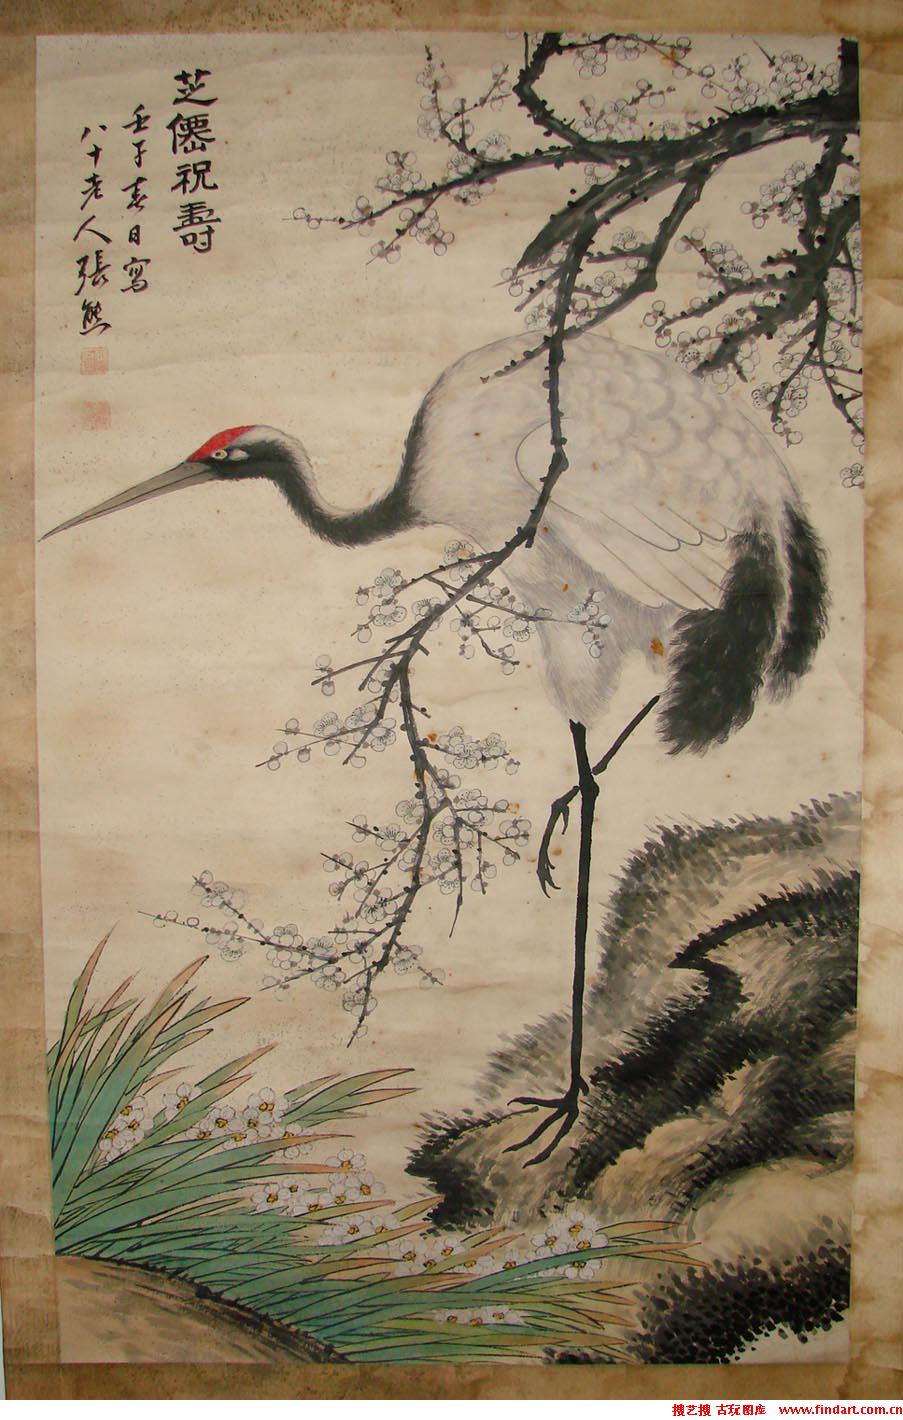 芝僊祝壽
壬子春日寫
八十老人張熊
搜艺搜 古玩图库 www.findart.com.cn